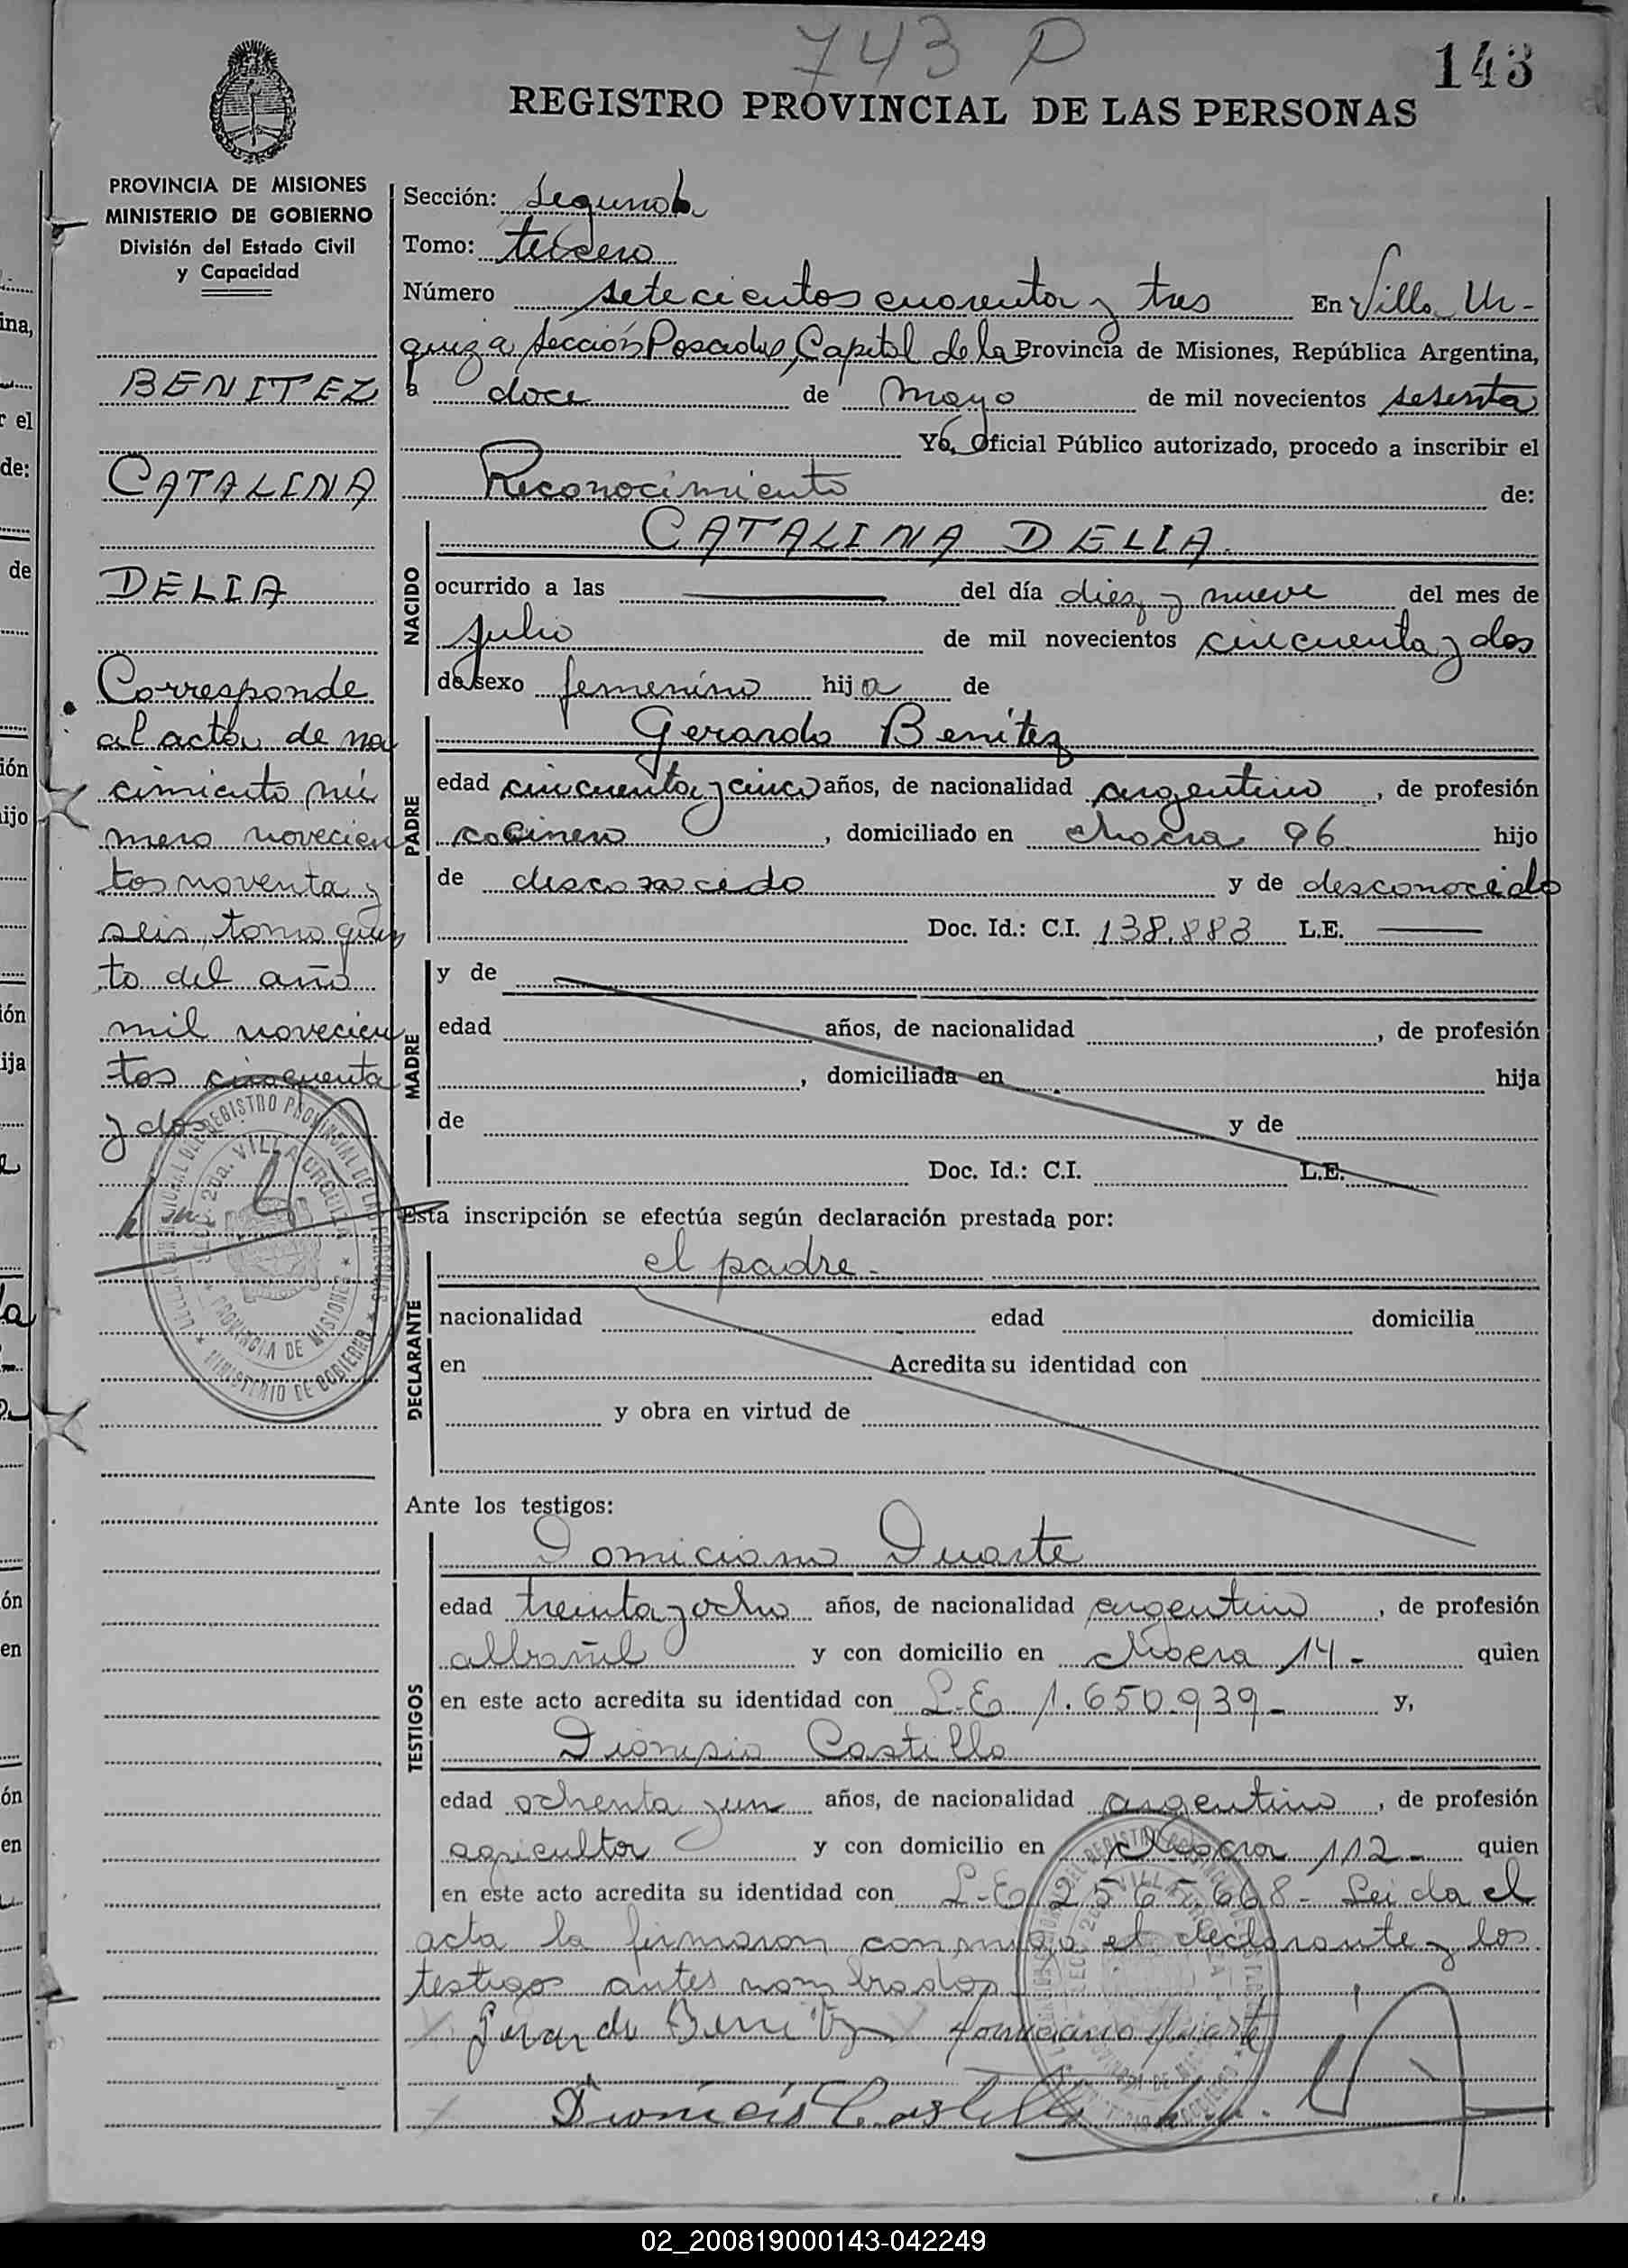 743 P
143
REGISTRO PROVINCIAL DE LAS PERSONAS
PROVINCIA DE MISIONES
MINISTERIO DE GOBIERNO
División del Estado Civil
y Capacidad
BENITEZ
CATALINA
DELIA
Corresponde
al acta de na
cimiento nú
mero novecien
tos noventa y
seis, tomo quin
to del año
mil novecien
tos cincuenta
y dos
Sección: Segunda
Tomo: tercero
Número setecientos cuarenta y tres En Villa Ur-
quiza Sección Posadas, Capital de la Provincia de Misiones, República Argentina,
a doce de mayo de mil novecientos sesenta
Yo, Oficial Público autorizado, procedo a inscribir el
Reconocimiento de:
NACIDO
CATALINA DELIA
ocurrido a las del día diez y nueve del mes de
julio de mil novecientos cincuenta y dos
de sexo femenino hija de
PADRE
Gerardo Benitez
edad cincuenta y cinco años, de nacionalidad argentino, de profesión
cocinero, domiciliado en chacra 96 hijo
de desconocido y de desconocido
Doc. Id.: C.I. 138.883 L.E.
MADRE
y de
edad años, de nacionalidad , de profesión
, domiciliada en hija
de y de
Doc. Id.: C.I. L.E.
Esta inscripción se efectúa según declaración prestada por:
DECLARANTE
el padre-
nacionalidad edad domicilia
en Acredita su identidad con
y obra en virtud de
Ante los testigos:
TESTIGOS
Domiciano Duarte
edad treinta y ocho años, de nacionalidad argentino, de profesión
albañil y con domicilio en chacra 14- quien
en este acto acredita su identidad con L.E 1.650.939- y,
Dionisio Castillo
edad ochenta y un años, de nacionalidad argentino, de profesión
agricultor y con domicilio en chacra 112- quien
en este acto acredita su identidad con L-E 2565668- Leida el
acta la firmaron conmigo el declarante y los
testigos antes nombrados
Gerardo Benitez Domiciano Duarte
Dionicio Castillo
02_200819000143-042249